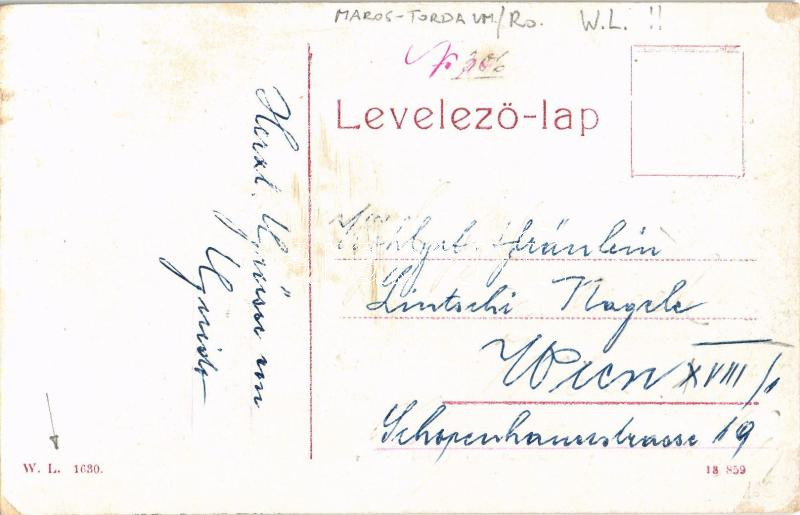 MAROS-TORDA VM./RO. W.L. !!
Levelező-lap
Herzl. Grüsse von
Guido
Wohlgeb. Fräulein
Lintschi Nagele
Wien XVIII/1
Schopenhauerstrasse 19
W. L. 1630.
18 859